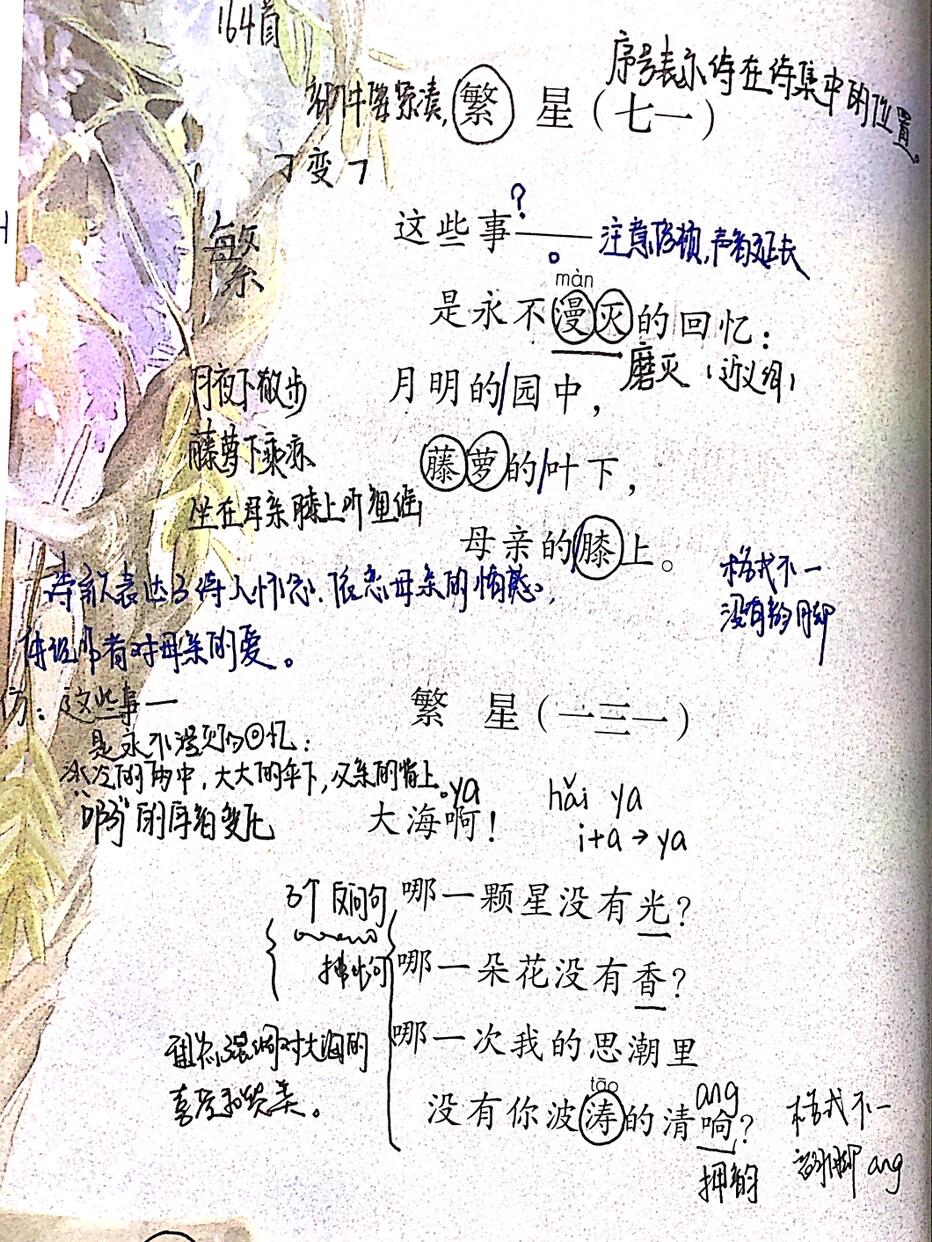 164首
序号表示诗在诗集中的位置。
部件要紧凑,
繁 星（七一）
㇆变㇇
繁
这些事——
?
。
注意停顿,声断延去
màn
是永不漫灭的回忆:
磨灭（近义词）
月夜下散步
月明的/园中,
藤萝下乘凉
藤萝的/叶下,
坐在母亲膝上听
母亲的/膝上。
格式不一
没有韵脚
诗歌表达了诗人怀念、依恋母亲的情感。
体现作者对母亲的爱。
仿：这些事一
是永不漫灭的回忆:
的雨中,大大的伞下,父亲的背上。
繁 星（一三一）
"啊"的序的变化
ya
大海啊!
hǎi ya
i+a→ya
3个反问句
哪一颗星没有光?
排比句
哪一朵花没有香?
哪一次我的思潮里
对大海的
喜爱和赞美。
tāo
没有你波涛的清响?
ang
押韵
格式不一
韵脚 ang